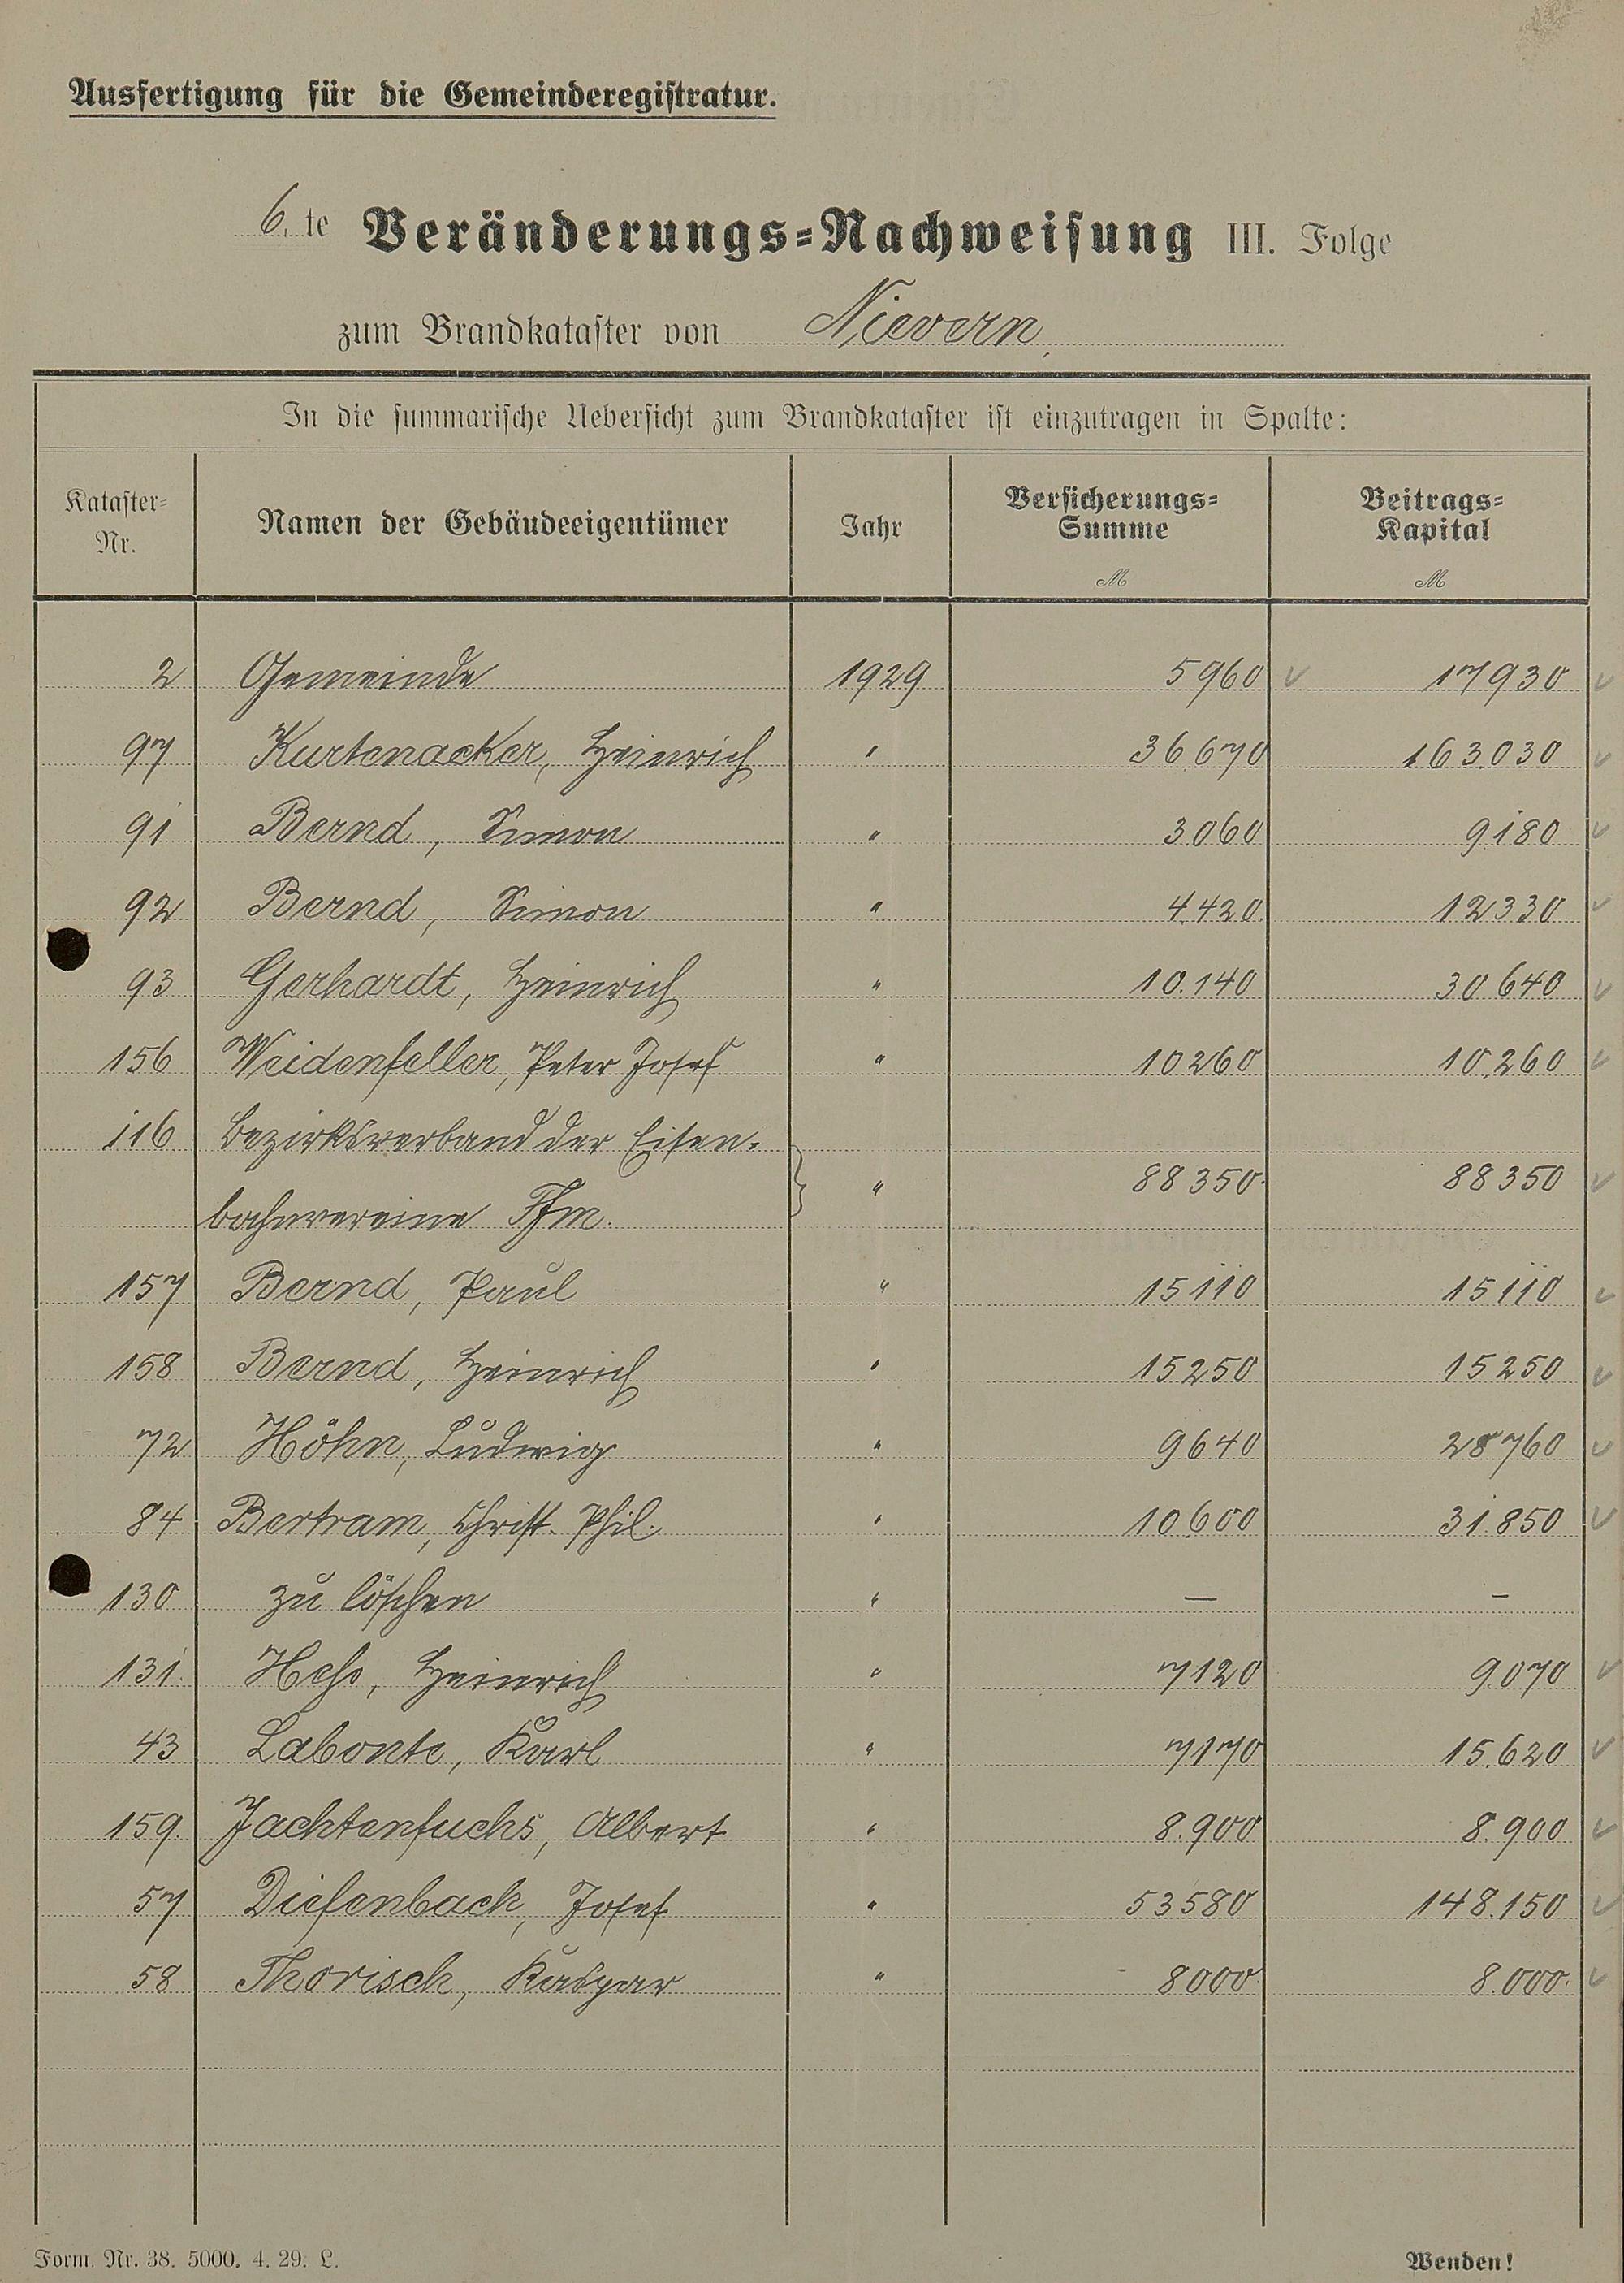 Ausfertigung für die Gemeinderegistratur.
6. te Veränderungs=Nachweisung III. Folge
zum Brandkataster von Nievern
In die summarische Uebersicht zum Brandkataster ist einzutragen in Spalte:
Kataster=Nr. Namen der Gebäudeeigentümer Jahr Versicherungs=Summe M Beitrags=Kapital M
2 Gemeinde 1929 5960 17930
97 Kurtenacker, Heinrich " 36.670 163.030
91 Bernd, Simon " 3060 9180
92 Bernd, Simon " 4.420 12330
93 Gerhardt, Heinrich " 10.140 30640
156 Weidenfeller, Peter Josef " 10260 10.260
116 Bezirksverband der Eisen-
bahnvereine Ffm. " 88350 88350
157 Bernd, Paul " 15110 15110
158 Bernd, Heinrich " 15250 15250
72 Höhn, Ludwig " 9640 28760
84 Bertram, Christ. Phil. " 10600 31.850
130 zu löschen " — —
131 Heß, Heinrich " 7120 9.070
43 Labonte, Karl " 7170 15.620
159 Jachtenfuchs, Albert " 8.900 8.900
57 Diefenbach, Josef " 53580 148.150
58 Thorisch, Kaspar " 8000 8.000
Form. Nr. 38. 5000. 4. 29. L.
Wenden!